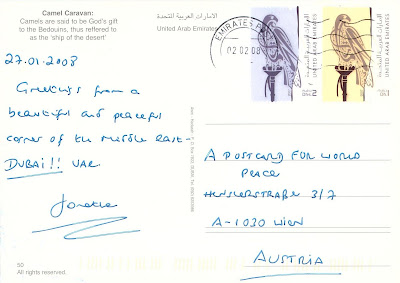 Camel Caravan:
Camels are said to be God's gift
to the Bedouins, thus reffered to
as the 'ship of the desert'
الامارات العربية المتحدة
United Arab Emirates
EMIRATES
02 02 08
UNITED ARAB EMIRATES
UNITED ARAB EMIRATES
27.01.2008
Greetings from a
beautiful and peaceful
corner of the Middle east-
DUBAI!! UAE
A POSTCARD FOR WORLD
PEACE
HENSLERSTRAßE 3/7
A-1030 WIEN
AUSTRIA
50
All rights reserved.